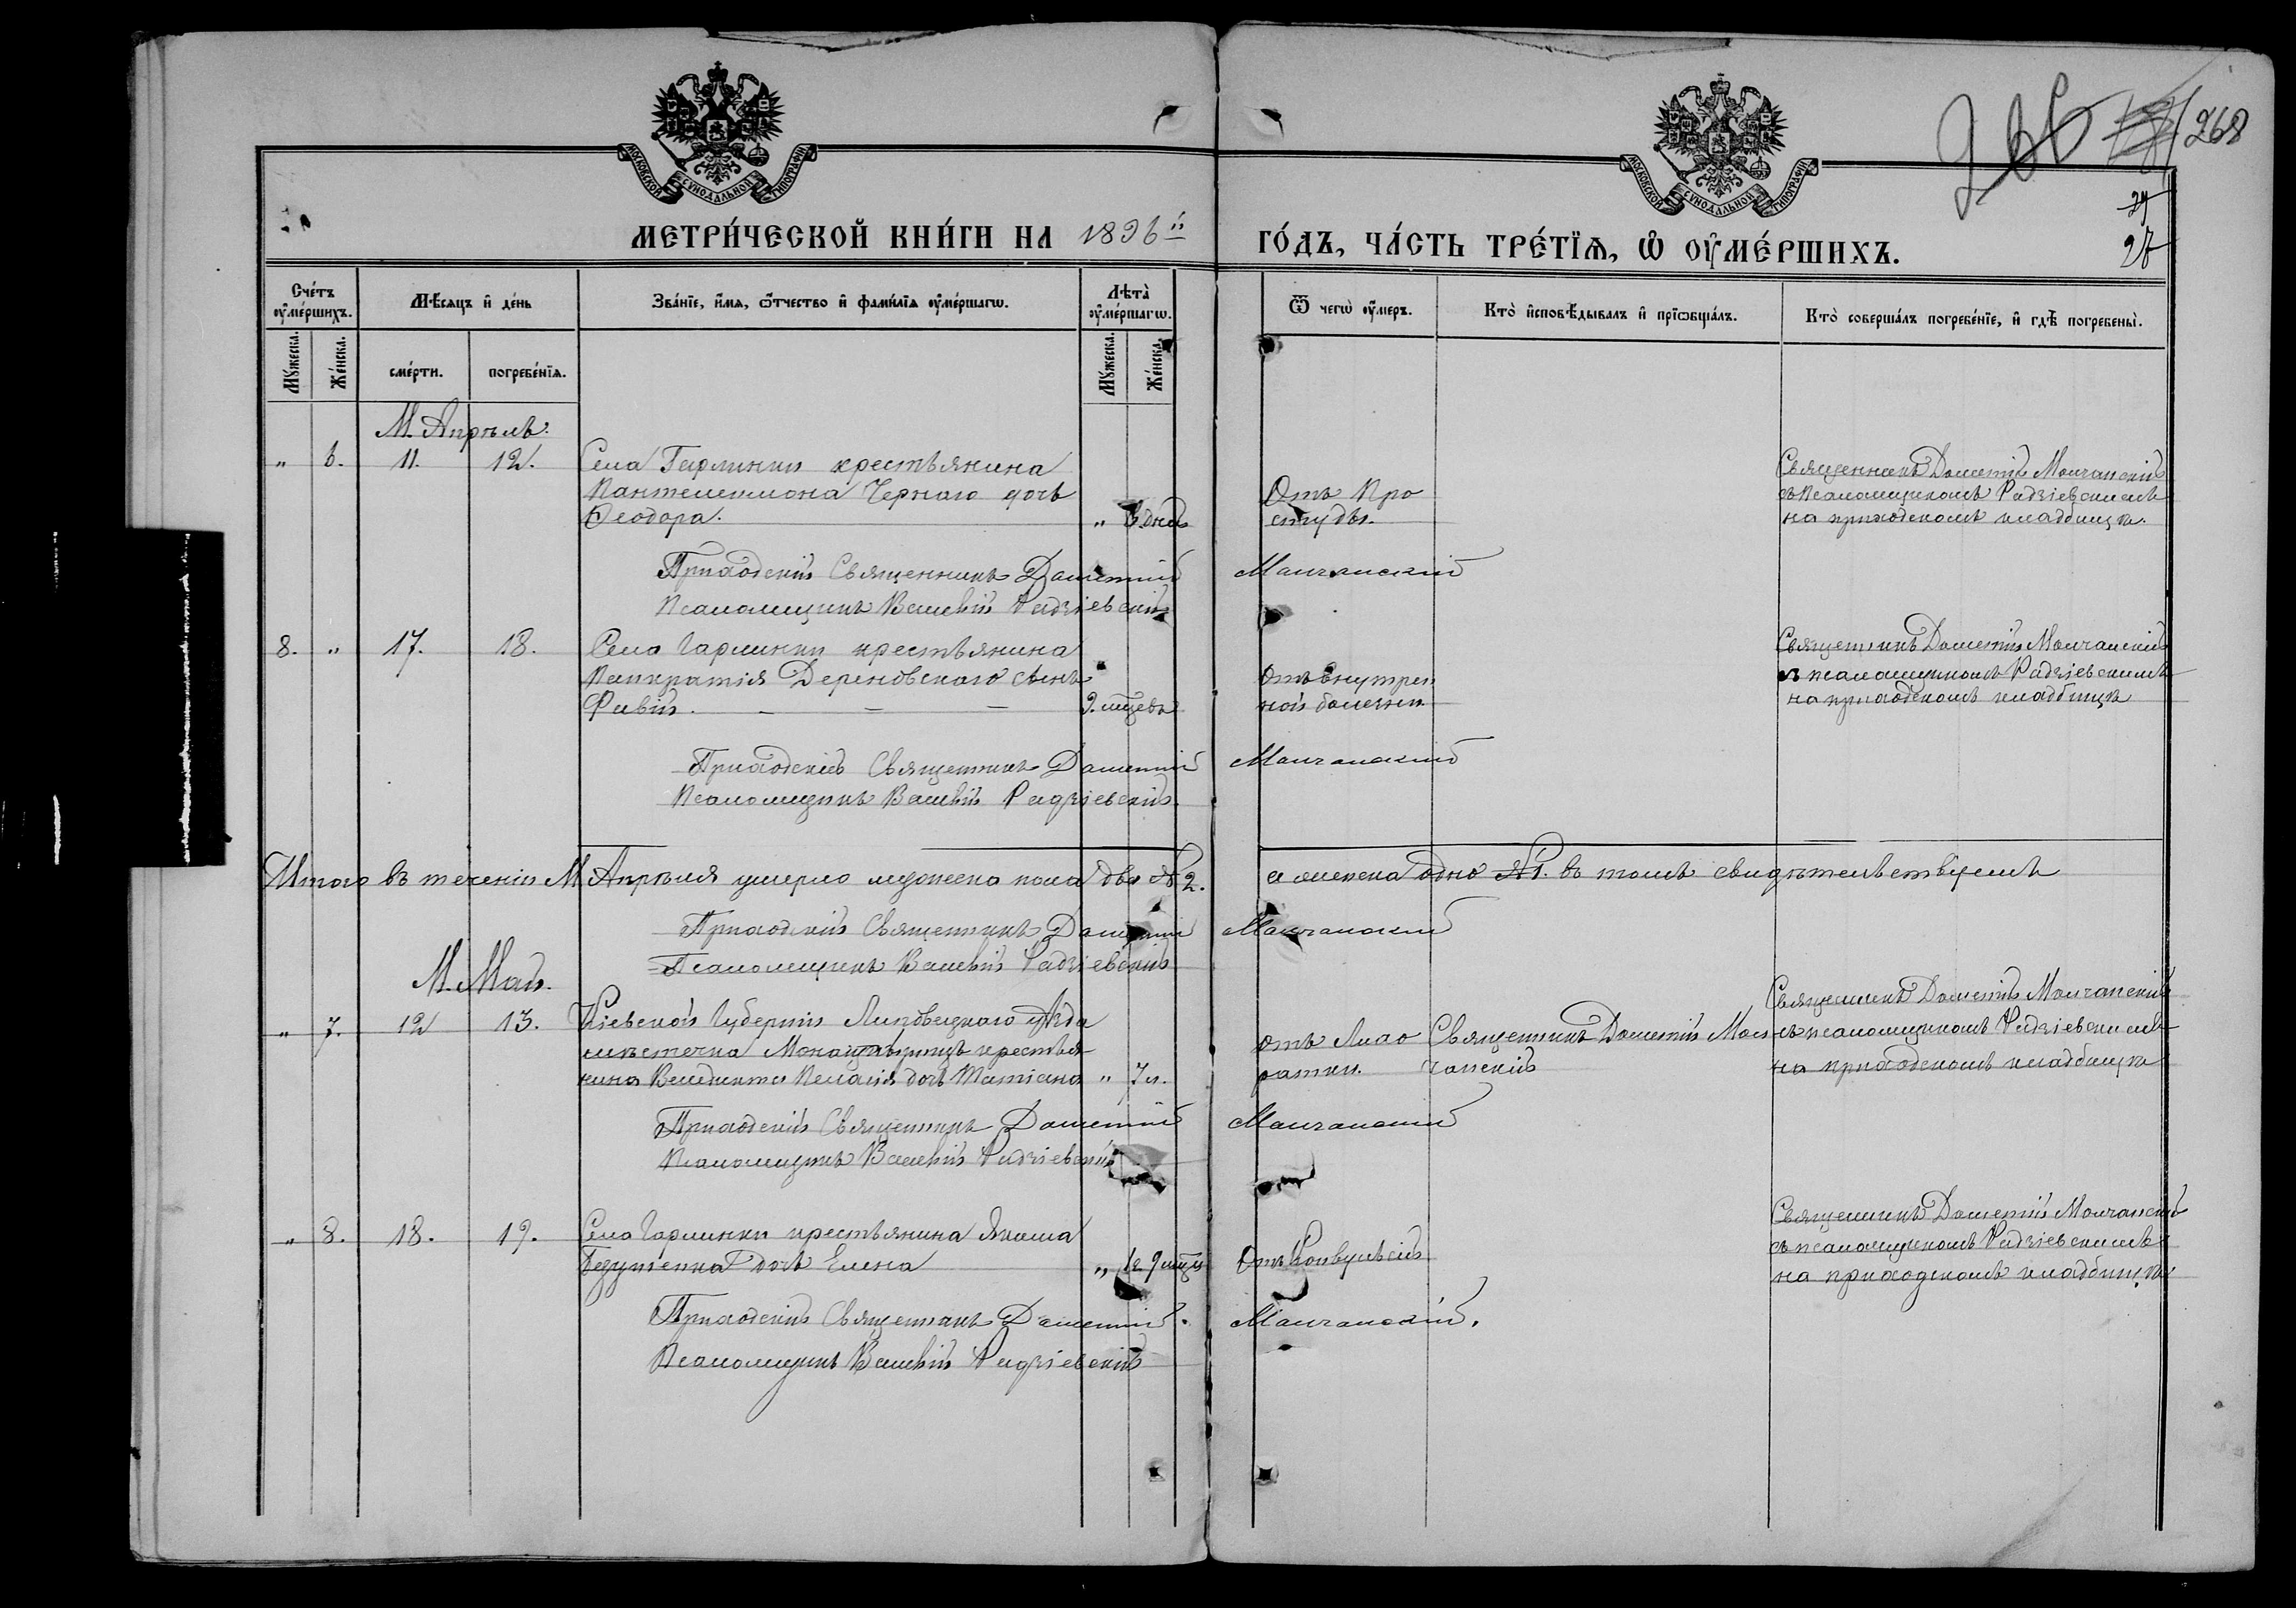 268
27
МОСКОВСКОЙ СѴНОДАЛЬНОЙ ТИПОГРАФІИ
МОСКОВСКОЙ СѴНОДАЛЬНОЙ ТИПОГРАФІИ
МЕТРИ́ЧЕСКОЙ КНИ́ГИ НА 1896й ГО́ДЪ, ЧА́СТЬ ТРЕ́ТІѦ, Ѡ҆ ОУ҆МЕ́РШИХЪ.
Сче́тъ оу҆ме́ршихъ.
Мѣ́сѧцъ и҆ де́нь
Зва́нїе, и҆́мѧ, ѻ҆́тчество и҆ фами́лїѧ оу҆ме́ршагѡ.
Лѣта̀ оу҆ме́ршагѡ.
Ѿ чегѡ̀ оу҆́меръ.
Кто̀ и҆сповѣ́дывалъ и҆ прїѡбща́лъ.
Кто̀ соверша́лъ погребе́нїе, и҆ гдѣ̀ погребены̀.
Му́жеска.
Же́нска.
сме́рти.
погребе́нїѧ.
Му́жеска.
Же́нска.
М. Апрѣль.
" 6. 11. 12. Села Гарминки крестьянина
Пантелеимона Чернаго дочь
Ѳеодора. " 3 дня
Отъ Про
студы.
Священникъ Дометій Молчанскій
съ псаломщикомъ Радзіевскимъ
на приходскомъ кладбищѣ.
Приходскій Священникъ Дометій Молчанскій
Псаломщикъ Василій Радзіевскій
8. " 17. 18. Села Гарминки крестьянина
Панкратія сынъ
9. мѣсяцевъ
Отъ внутрен
ной болезни
Священникъ Дометій Молчанскій
съ псаломщикомъ Радзіевскимъ
на приходскомъ кладбищѣ
Приходскій Священникъ Дометій Молчанскій
Псаломщикъ Василій Радзіевскій
Итого въ теченіи М. Апрѣля умерло мужеска пола два №2. а женска одна №1. въ томъ свидѣтельствуемъ
Приходскій Священникъ Дометій Молчанскій
Псаломщикъ Василій Радзіевскій
М. Май.
" 7. 12 13. Кіевской Губерніи Липовецкаго уѣзда
мѣстечка крестья
нина дочь Татіана " 7 л.
отъ Лихо
радки.
Священникъ Дометій Мол
чанскій
Священникъ Дометій Молчанскій
съ псаломщикомъ Радзіевскимъ
на приходскомъ кладбищѣ
Приходскій Священникъ Дометій Молчанскій
Псаломщикъ Василій Радзіевскій
" 8. 18. 19. Села Гарминки крестьянина Якима
дочь Елена
Отъ Конвульсій
Священникъ Дометій Молчанскій
съ псаломщикомъ Радзіевскимъ
на приходскомъ кладбищѣ
Приходскій Священникъ Дометій Молчанскій.
Псаломщикъ Василій Радзіевскій